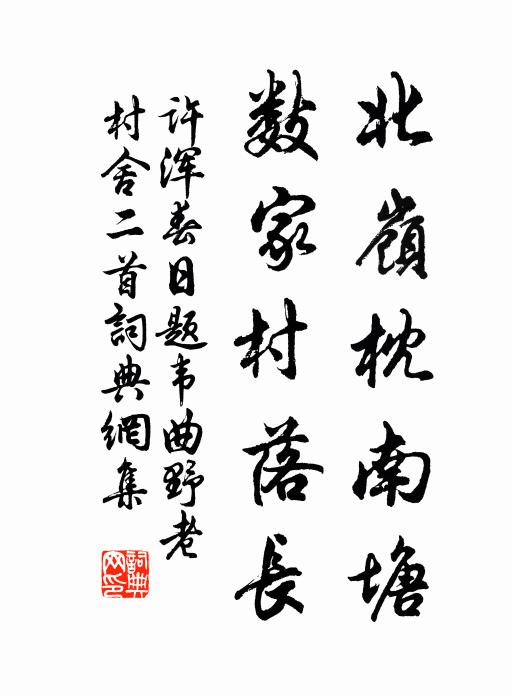 北嶺枕南塘
数家村落長
许浑春日題韦曲野老
村舍二首詞典網集
詞典
网印